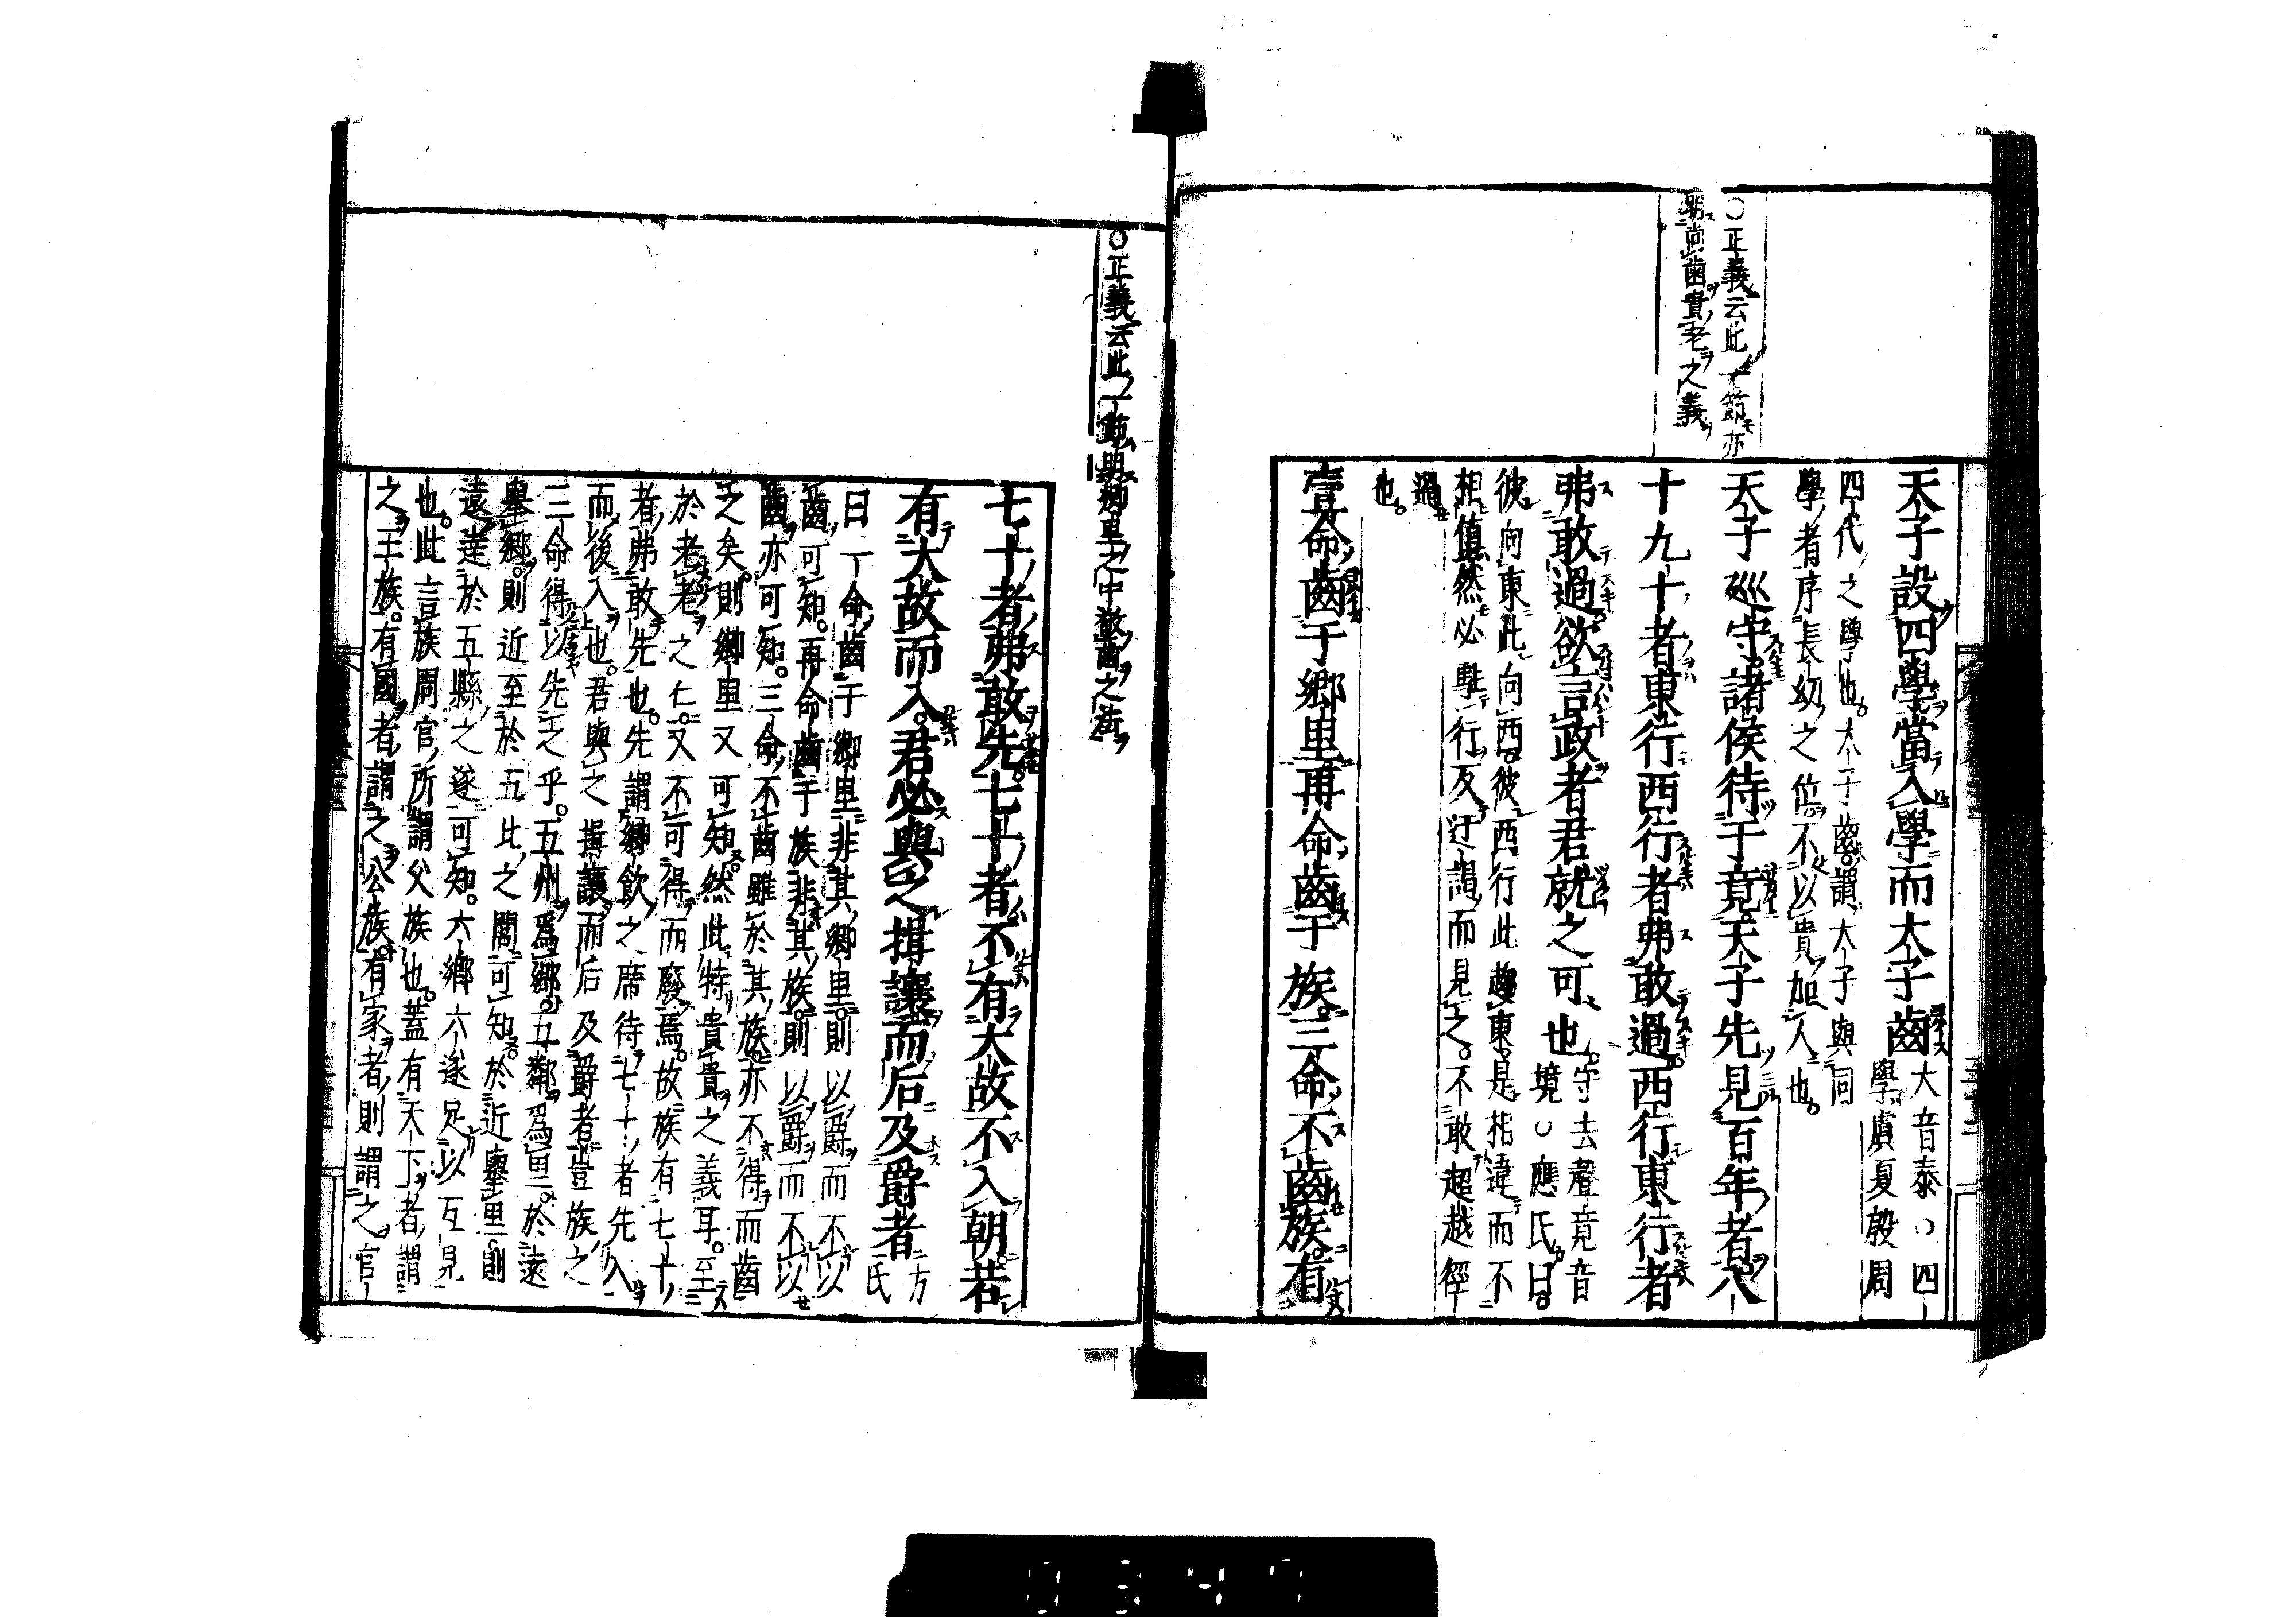 ○正義云此一節亦
明尚齒貴老之義
天子設四學當入學而太子齒大音泰○四
學虞夏殷周
四代之學也太子齒謂太子與同
學者序長幼之位不以貴加人也
天子廵守諸侯待于竟天子先見百年者八
十九十者東行西行者弗敢過西行東行者
弗敢過欲言政者君就之可也守去聲竟音
境○應氏曰
彼向東此向西彼西行此趨東是相違而不
相值然必駐行反迂謁而見之不敢超越徑
過
也
壹命齒于鄉里再命齒于族三命不齒族有
○正義云此一節明鄉里之中敬齒之法
七十者弗敢先七十者不有大故不入朝若
有大故而入君必與之揖讓而后及爵者方
氏
曰一命齒于鄉里非其鄉里則以爵而不以
齒可知再命齒于族非其族則以爵而不以
齒亦可知三命不齒雖於其族亦不得而齒
之矣則鄉里又可知然此特貴貴之義耳至
於老老之仁又不可得而廢焉故族有七十
者弗敢先也先謂鄉飲之席待七十者先入
而後入也君與之揖讓而后及爵者豈族之
三命得以先之乎五州爲鄉五鄰爲里於遠
舉鄉則近至於五比之閭可知於近舉里則
遠達於五縣之遂可知六鄉六遂足以互見
也此言族周官所謂父族也蓋有天下者謂
之王族有國者謂之公族有家者則謂之官